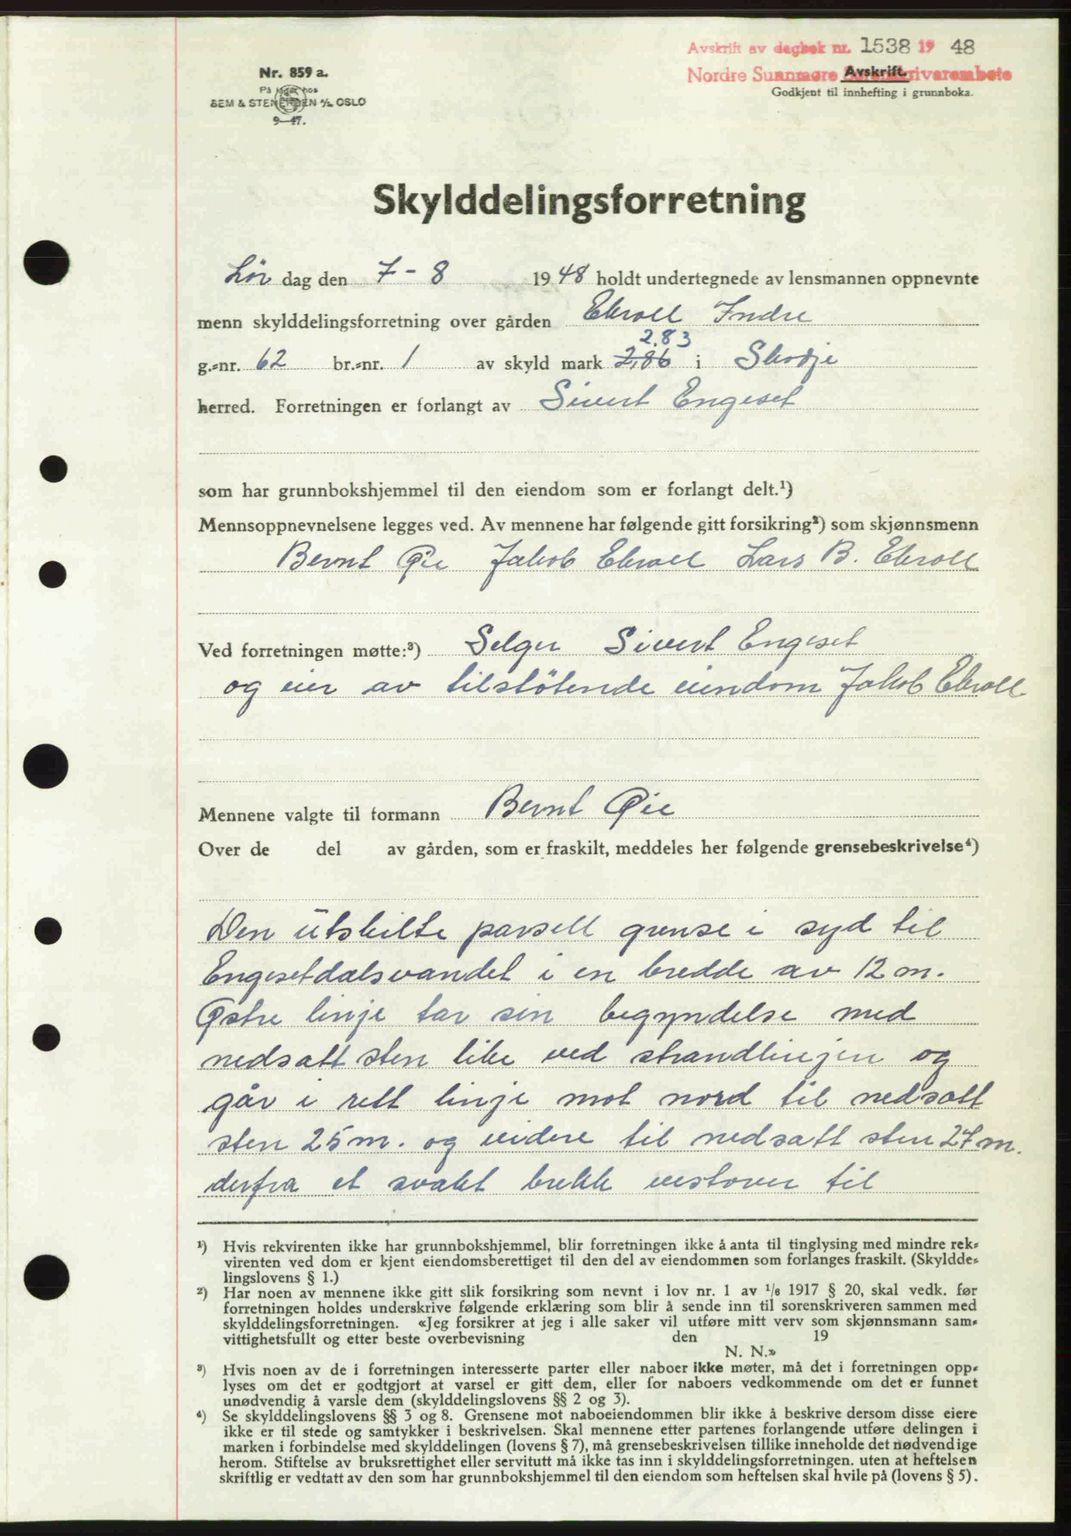 Avskrift av dagbok nr. 1538 19 48
Nordre Sunnmøre sorenskrivarembete
Avskrift.
Godkjent til innhefting i grunnboka.
Nr. 859 a.
På lager hos
SEM & STENERSEN A/S OSLO
9-47.
Skylddelingsforretning
Lør dag den 7-8 1948 holdt undertegnede av lensmannen oppnevnte
menn skylddelingsforretning over gården Ekroll Indre
2.83
g.-nr. 62 br.-nr. 1 av skyld mark 2,86 i Skodje
herred. Forretningen er forlangt av Sivert Engeset
som har grunnbokshjemmel til den eiendom som er forlangt delt.¹)
Mennsoppnevnelsene legges ved. Av mennene har følgende gitt forsikring²) som skjønnsmenn
Bernt Øie Jakob Ekroll Lars B. Ekroll
Ved forretningen møtte:³) Selger Sivert Engeset
og eier av tilstøtende eiendom Jakob Ekroll
Mennene valgte til formann Bernt Øie
Over de del av gården, som er fraskilt, meddeles her følgende grensebeskrivelse⁴)
Den utskilte parsell grense i syd til
Engesetdalsvandet i en bredde av 12 m.
Østre linje tar sin begyndelse med
nedsatt sten like ved strandlinjen og
går i rett linje mot nord til nedsatt
sten 25 m. og videre til nedsatt sten 27 m.
derfra et svakt brekk vestover til
¹) Hvis rekvirenten ikke har grunnbokshjemmel, blir forretningen ikke å anta til tinglysing med mindre rek-
virenten ved dom er kjent eiendomsberettiget til den del av eiendommen som forlanges fraskilt. (Skyldde-
lingslovens § 1.)
²) Har noen av mennene ikke gitt slik forsikring som nevnt i lov nr. 1 av 1/6 1917 § 20, skal vedk. før
forretningen holdes underskrive følgende erklæring som blir å sende inn til sorenskriveren sammen med
skylddelingsforretningen. «Jeg forsikrer at jeg i alle saker vil utføre mitt verv som skjønnsmann sam-
vittighetsfullt og etter beste overbevisning den 19
N. N.»
³) Hvis noen av de i forretningen interesserte parter eller naboer ikke møter, må det i forretningen opp-
lyses om det er godtgjort at varsel er gitt dem, eller for naboers vedkommende om det er funnet
unødvendig å varsle dem (skylddelingslovens §§ 2 og 3).
⁴) Se skylddelingslovens §§ 3 og 8. Grensene mot naboeiendommen blir ikke å beskrive dersom disse eiere
ikke er til stede og samtykker i beskrivelsen. Skal mennene etter partenes forlangende utføre delingen i
marken i forbindelse med skylddelingen (lovens § 7), må grensebeskrivelsen tillike inneholde det nødvendige
herom. Stiftelse av bruksrettighet eller servitutt må ikke tas inn i skylddelingsforretningen. uten at heftelsen
skriftlig er vedtatt av den som har grunnbokshjemmel til den eiendom som heftelsen skal hvile på (lovens § 5).